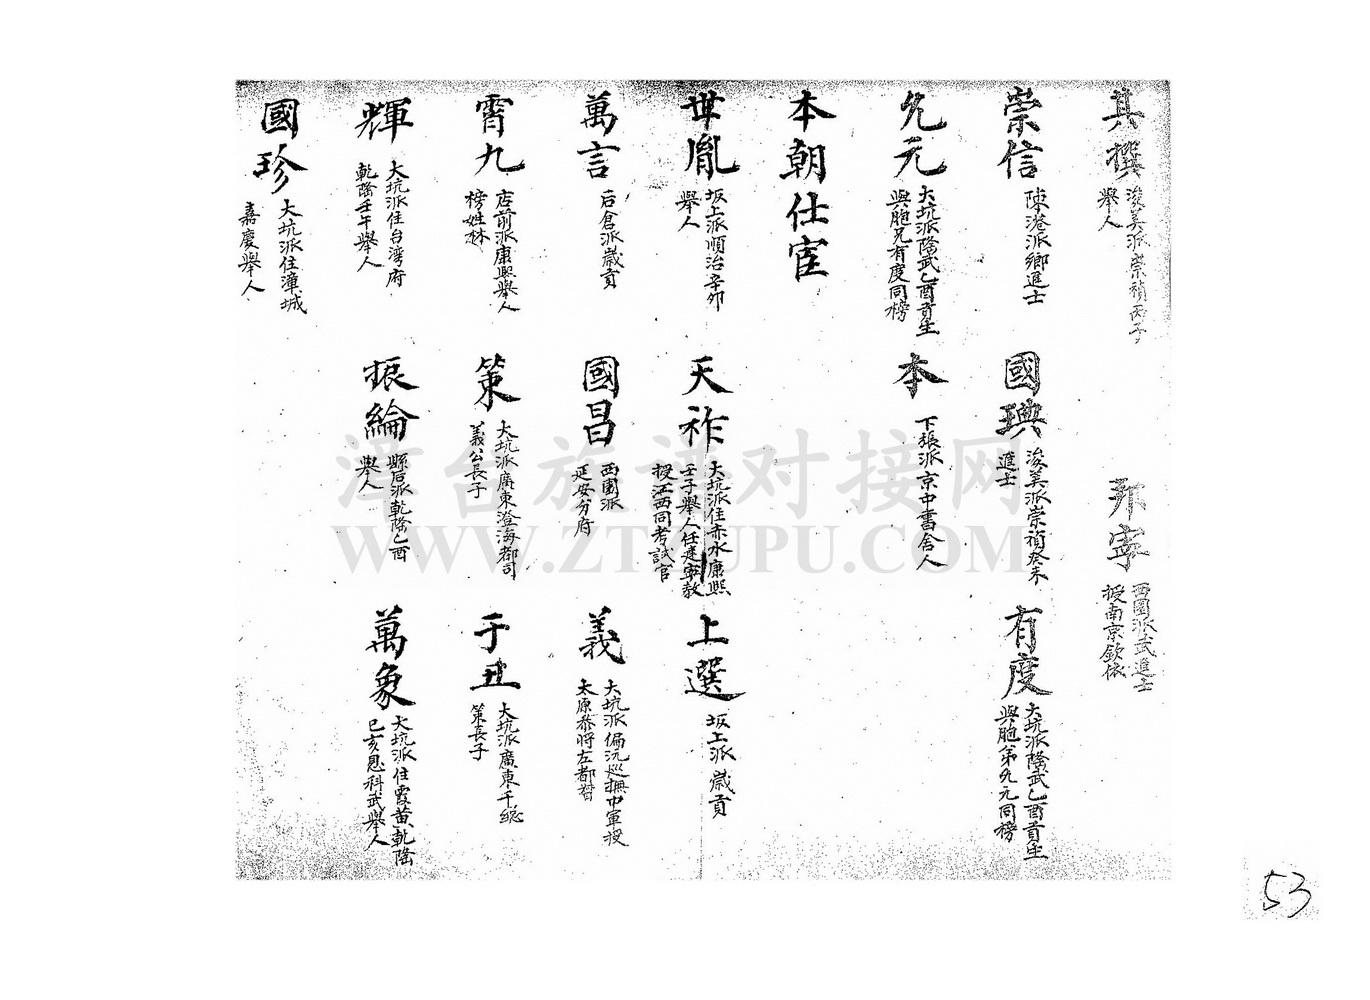 其撰 浚美派崇禎丙子
舉人
邦寧 西園派武進士
授南京欽依
崇信 陳港派鄉進士
國璵 浚美派崇禎癸未
進士
有度 大坑派隆武乙酉貢生
與胞弟允元同榜
允元 大坑派隆武乙酉貢生
與胞兄有度同榜
本 下張派京中書舍人
本朝仕宦
世胤 坂上派順治辛卯
舉人
天祚 大坑派住赤水康熙
壬子舉人任建寧教
授江西同考試官
上選 坂上派歲貢
萬言 后倉派歲貢
國昌 西園派
延安分府
義 大坑派偏沅巡撫中軍授
太原參將左都督
霄九 店前派康熙舉人
榜姓林
策 大坑派廣東澄海都司
義公長子
于丑 大坑派廣東千總
策長子
輝 大坑派住台湾府
乾隆壬午舉人
振綸 縣后派乾隆乙酉
舉人
萬象 大坑派住霞黄乾隆
己亥恩科武舉人
國珍 大坑派住漳城
嘉慶舉人
漳台族谱对接网
WWW.ZTZUPU.COM
53